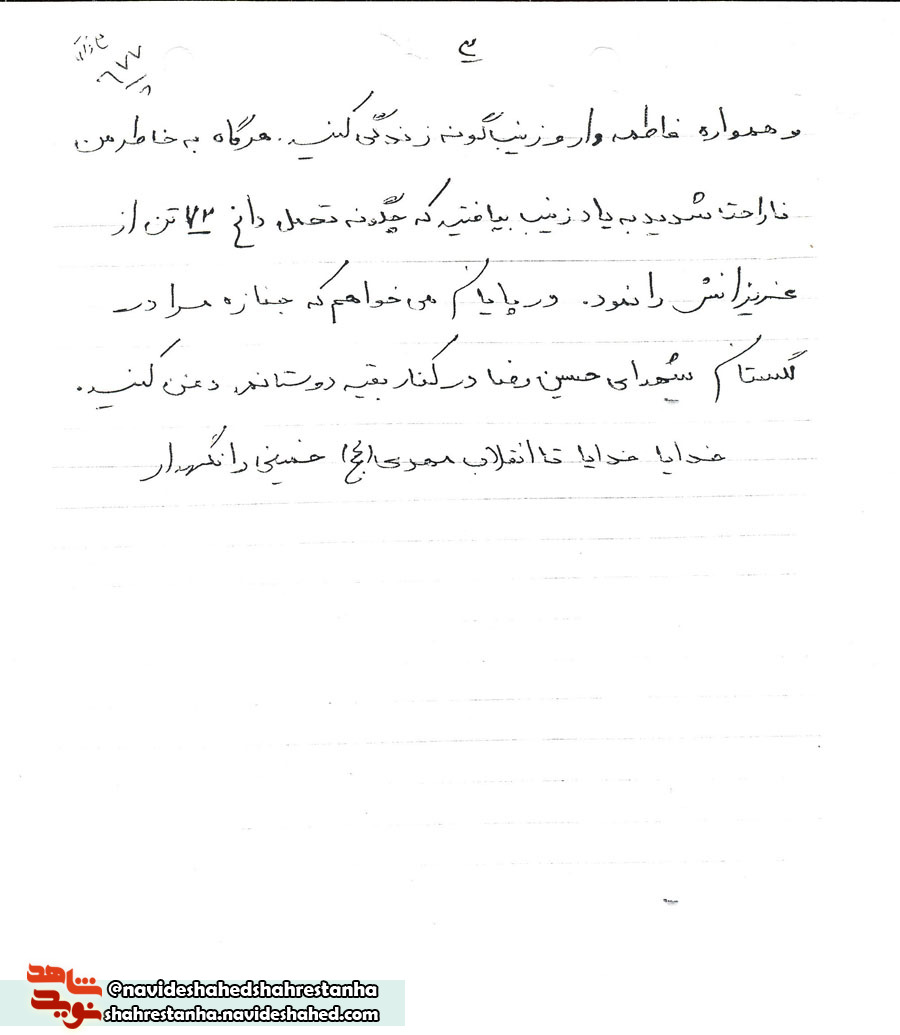 ۳
۷۷
و همواره فاطمه وار و زینب گونه زندگی کنید. هرگاه به خاطر من
ناراحت شدید به یاد زینب بیافتید که چگونه تحمل داغ ۷۲ تن از
عزیزانش را نمود. در پایان می خواهم که جنازه مرا در
گلستان شهدای حسین رضا در کنار بقیه دوستانم دفن کنید.
خدایا خدایا تا انقلاب مهدی (عج) خمینی را نگهدار
شاهد
نوید
@navideshahedshahrestanha
shahrestanha.navideshahed.com